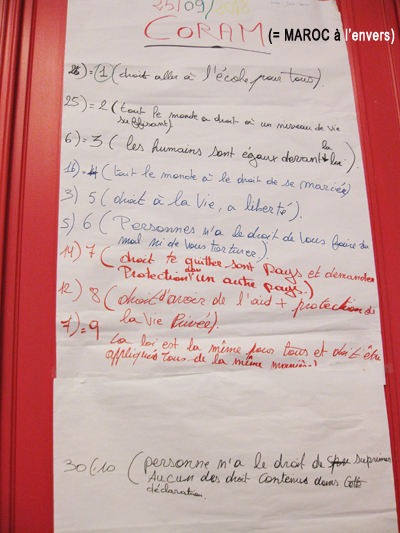 25/09/2018
CORAM (= MAROC à l'envers)
26) = 1 (droit aller à l'école pour tous).
25) = 2 (tout le monde a droit à un niveau de vie
suffisant)
6) = 3 ( les humains sont égaux devant la loi ).
16) = 4 (tout le monde à le droit de se mariée)
3) 5 (droit à la vie, a liberté).
5) 6 (Personnes n'a le droit de vous faire du
mal ni de vous torturer).
14) 7 (droit te quitter sont pays et demander
Protection dan un autre pays.)
12) 8 (droit d'avoir de l'aid + protection de
la vie Privée).
7) = 9
La loi est la même pour tous et doit être
appliqués tous de la même manière.
30(10 (personne n'a le droit de supprimer
Aucun des droit contenus dans cette
déclaration.